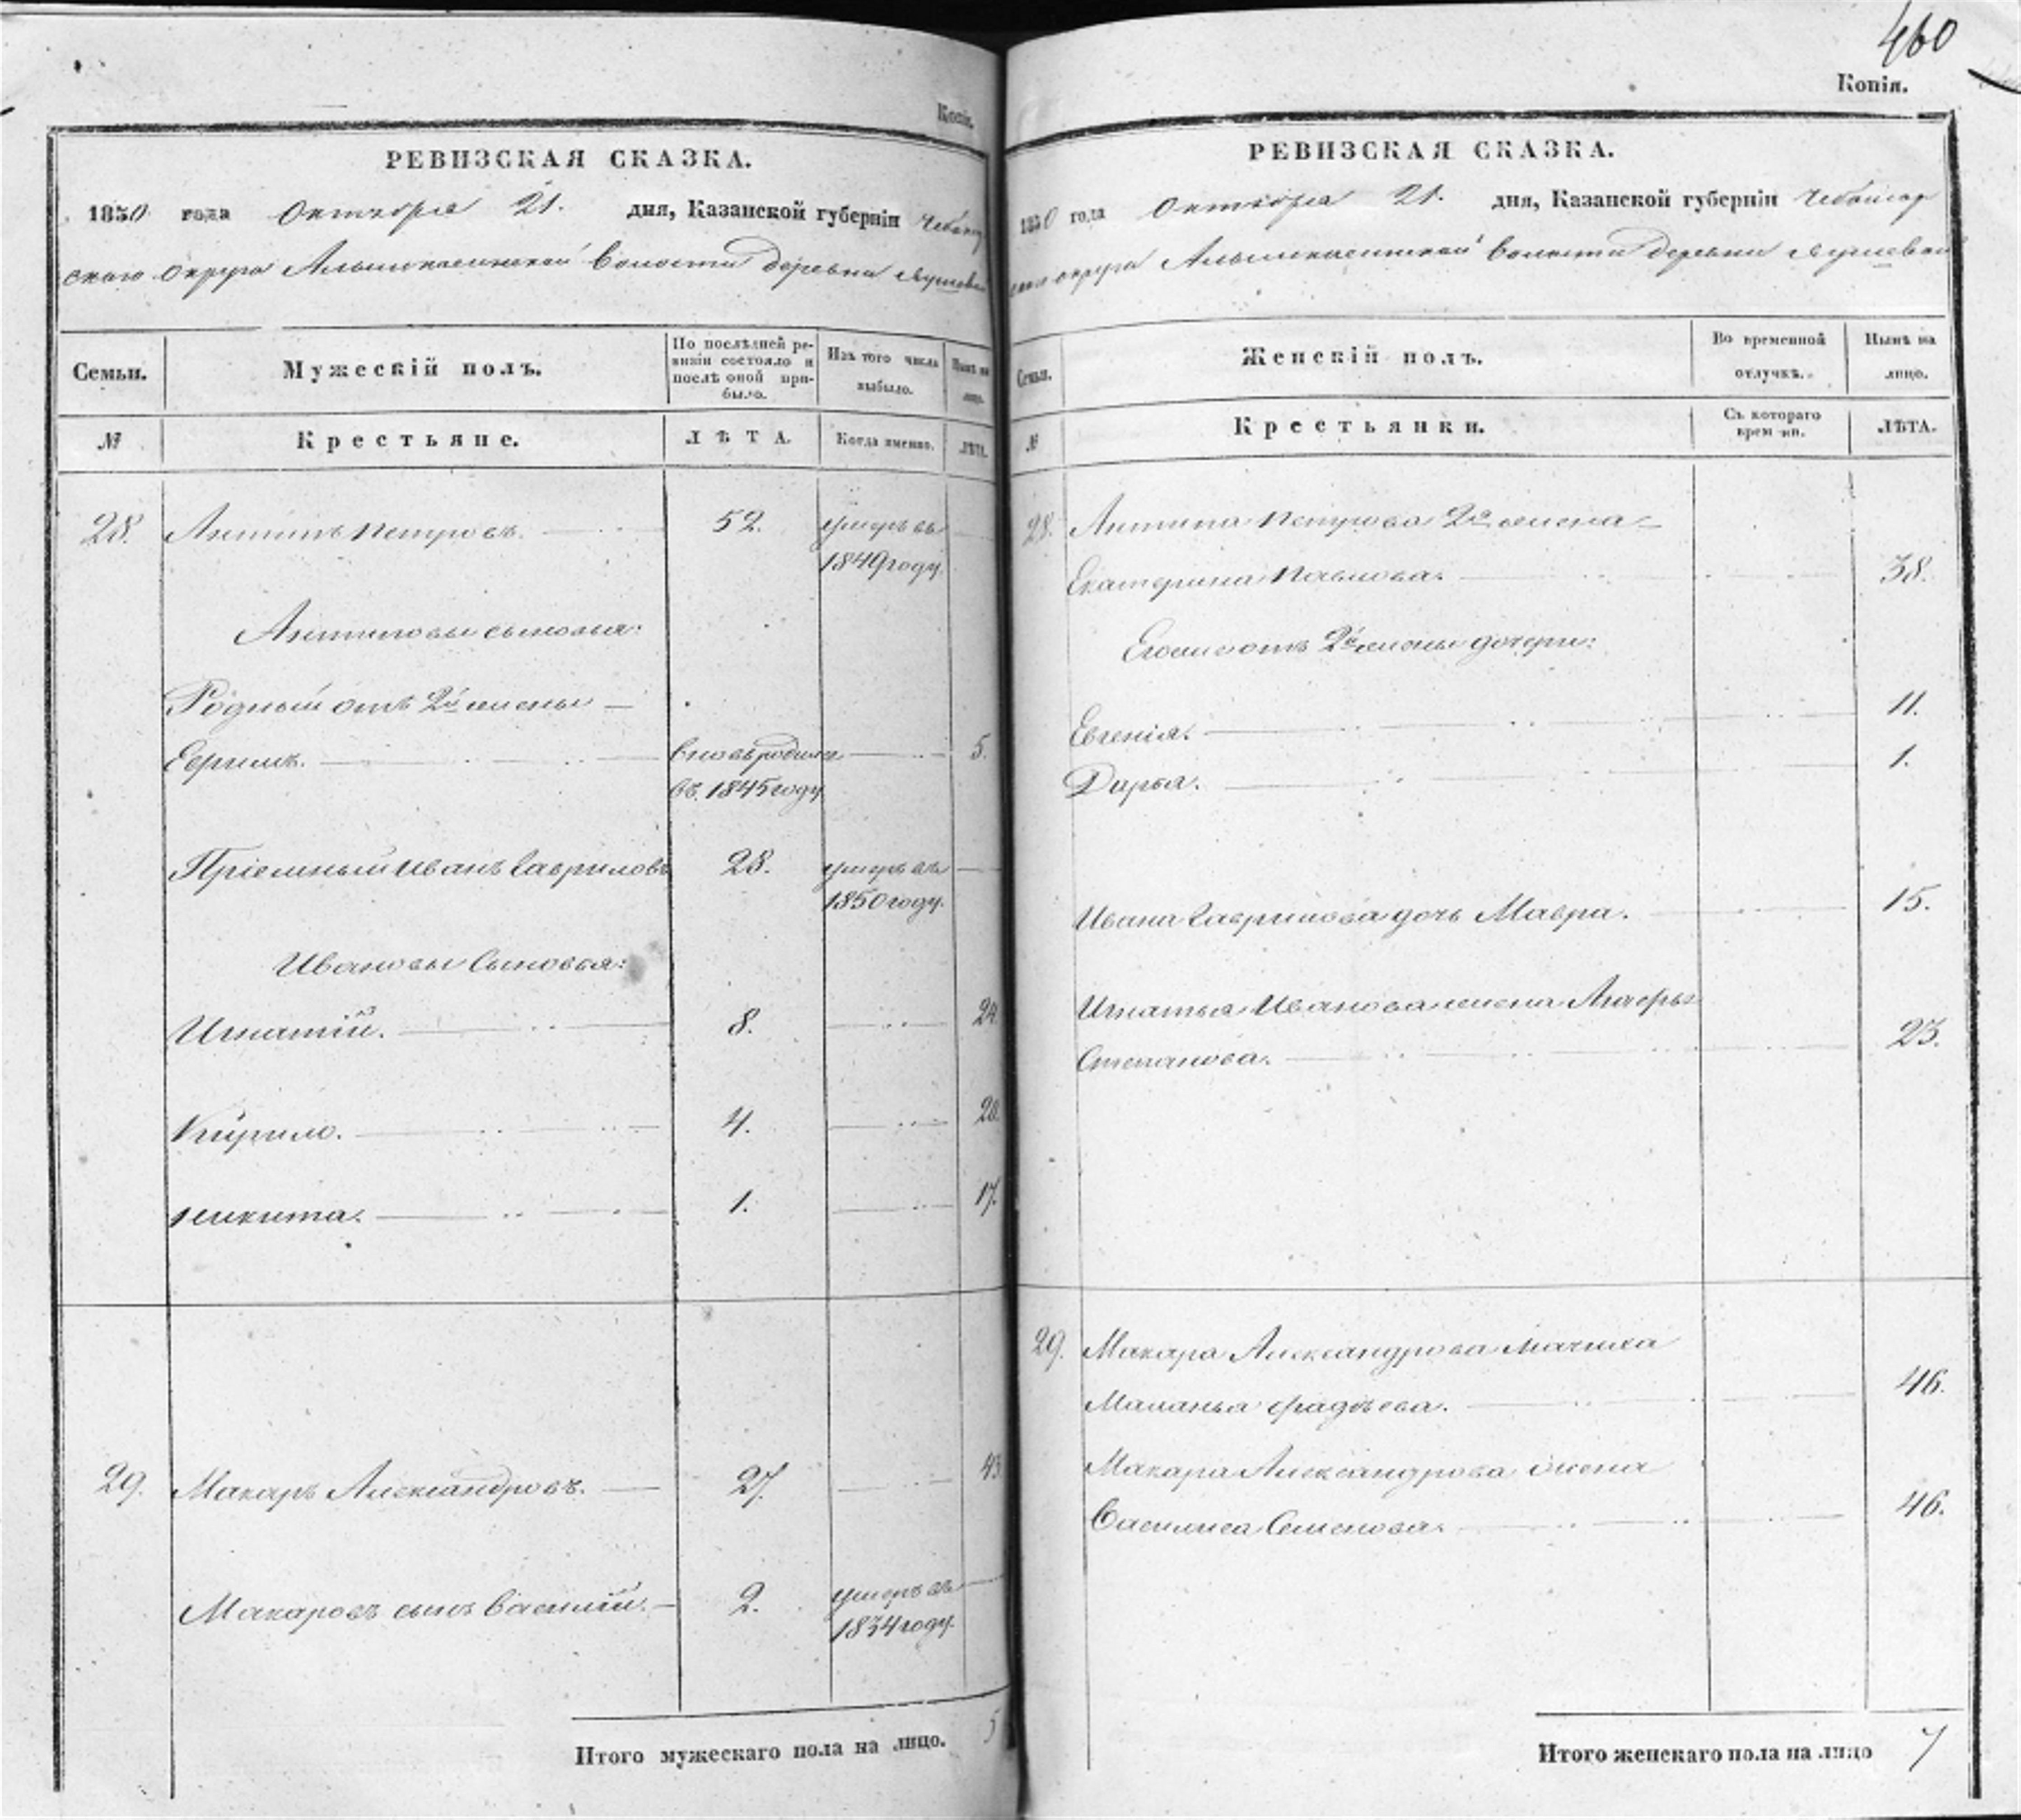 Копія.
РЕВИЗСКАЯ СКАЗКА.
1850 года Октября 21. дня, Казанской губерніи Чебоксар
скаго округа волости деревни
Семьи.
Мужескій полъ.
По послѣдней ре-
визіи состояло и
послѣ оной при-
было.
Изъ того числа
выбыло.
Нынѣ на
лицо.
№
Крестьяне.
ЛѢТА.
Когда именно.
ЛѢТА.
28. Антипъ Петровъ. 52. умеръ въ
1849 году.
Антиповы сыновья:
Родный отъ 2й жены
Ефримъ. вновь родился 5.
въ 1845 году
Пріемный Иванъ Гавриловъ 28. умеръ въ
1850 году.
Ивановы сыновья:
Игнатій. 8. 24.
Кирило. 4. 20.
Никита. 1. 17.
29. Макаръ Александровъ. 27. 43
Макаровъ сынъ Василій. 2. умеръ въ
1834 году.
Итого мужескаго пола на лицо. 5
460
Копія.
РЕВИЗСКАЯ СКАЗКА.
1850 года Октября 21. дня, Казанской губерніи Чебоксар
скаго округа волости деревни
Семьи.
Женскій полъ.
Во временной
отлучкѣ.
Нынѣ на
лицо.
№
Крестьянки.
Съ котораго
времени.
ЛѢТА.
28. Антипа Петрова 2я жена
Екатерина Павлова. 38.
Его же отъ 2й жены дочери:
Евгенія. 11.
Дарья. 1.
Ивана Гаврилова дочь Мавра. 15.
Игнатья Иванова жена
Степанова. 23.
29. Макара Александрова мачиха
Маланья Фадѣева. 46.
Макара Александрова жена
Василиса Семенова. 46.
Итого женскаго пола на лицо 7